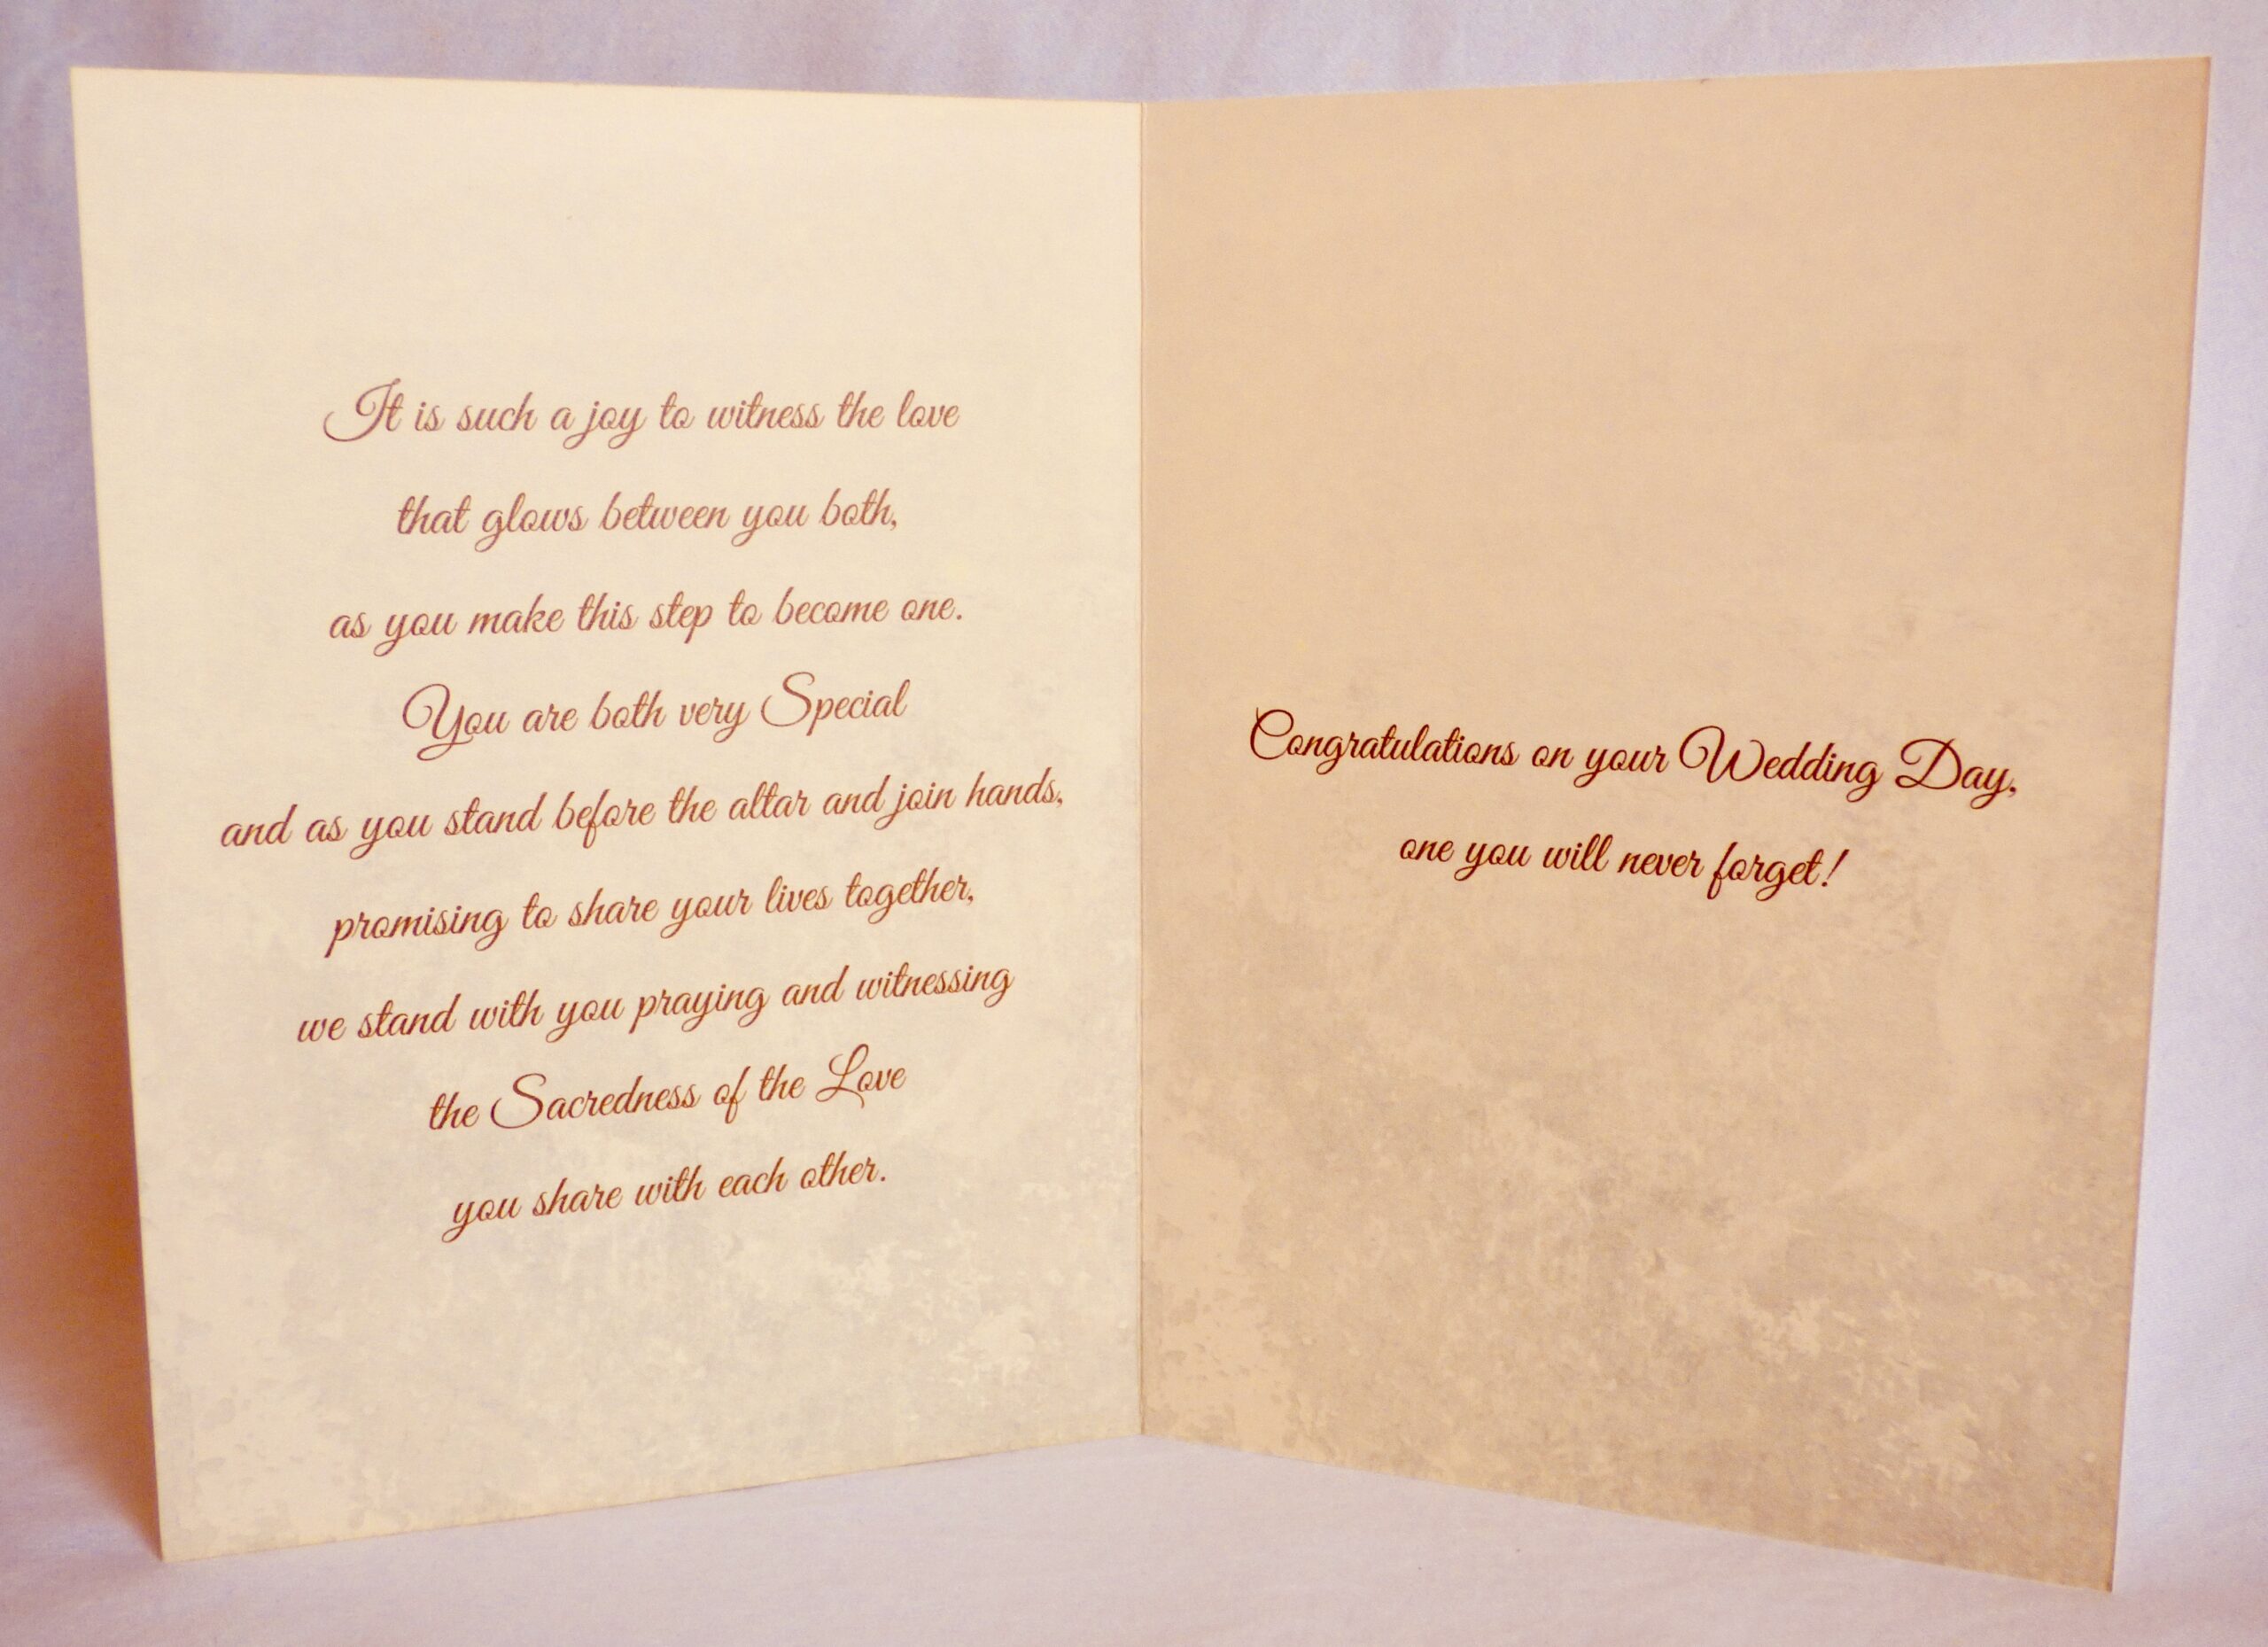 It is such a joy to witness the love
that glows between you both,
as you make this step to become one.
You are both very Special
and as you stand before the altar and join hands,
promising to share your lives together,
we stand with you praying and witnessing
the Sacredness of the Love
you share with each other.
Congratulations on your Wedding Day,
one you will never forget!